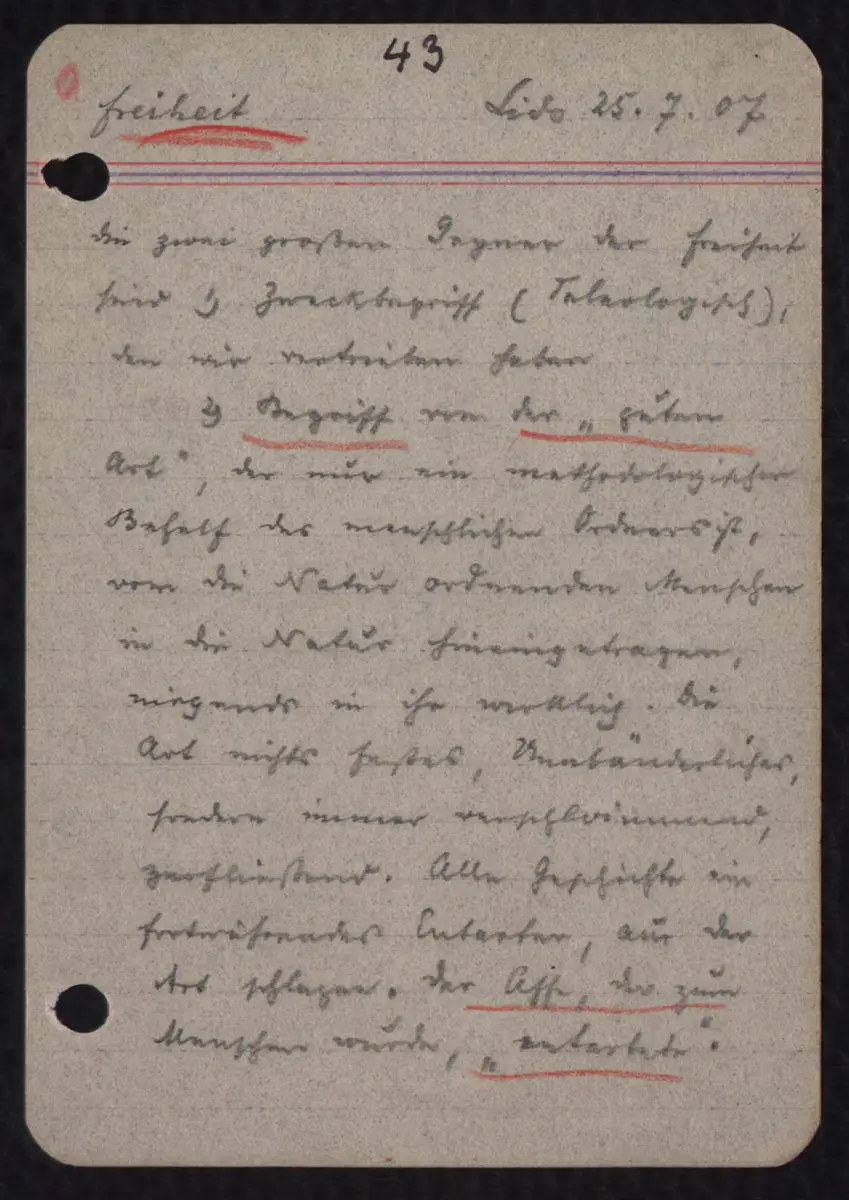 43
Freiheit Lido 25.7.07
Die zwei großen Gegner der Freiheit
sind 1) Zweckbegriff (Teleologisch),
den wir vertrieben haben
2) Begriff von der „guten
Art“, der nur ein methodologischer
Behelf des menschlichen Ordners ist,
vom die Natur ordnenden Menschen
in die Natur hineingetragen,
nirgends in ihr wirklich. Die
Art nichts Festes, Unabänderliches,
sondern immer verschwimmend,
zerfließend. Alle Geschichte ein
fortwährendes Entarten, aus der
Art schlagen. Der Affe, der zum
Menschen wurde, „entartete“.